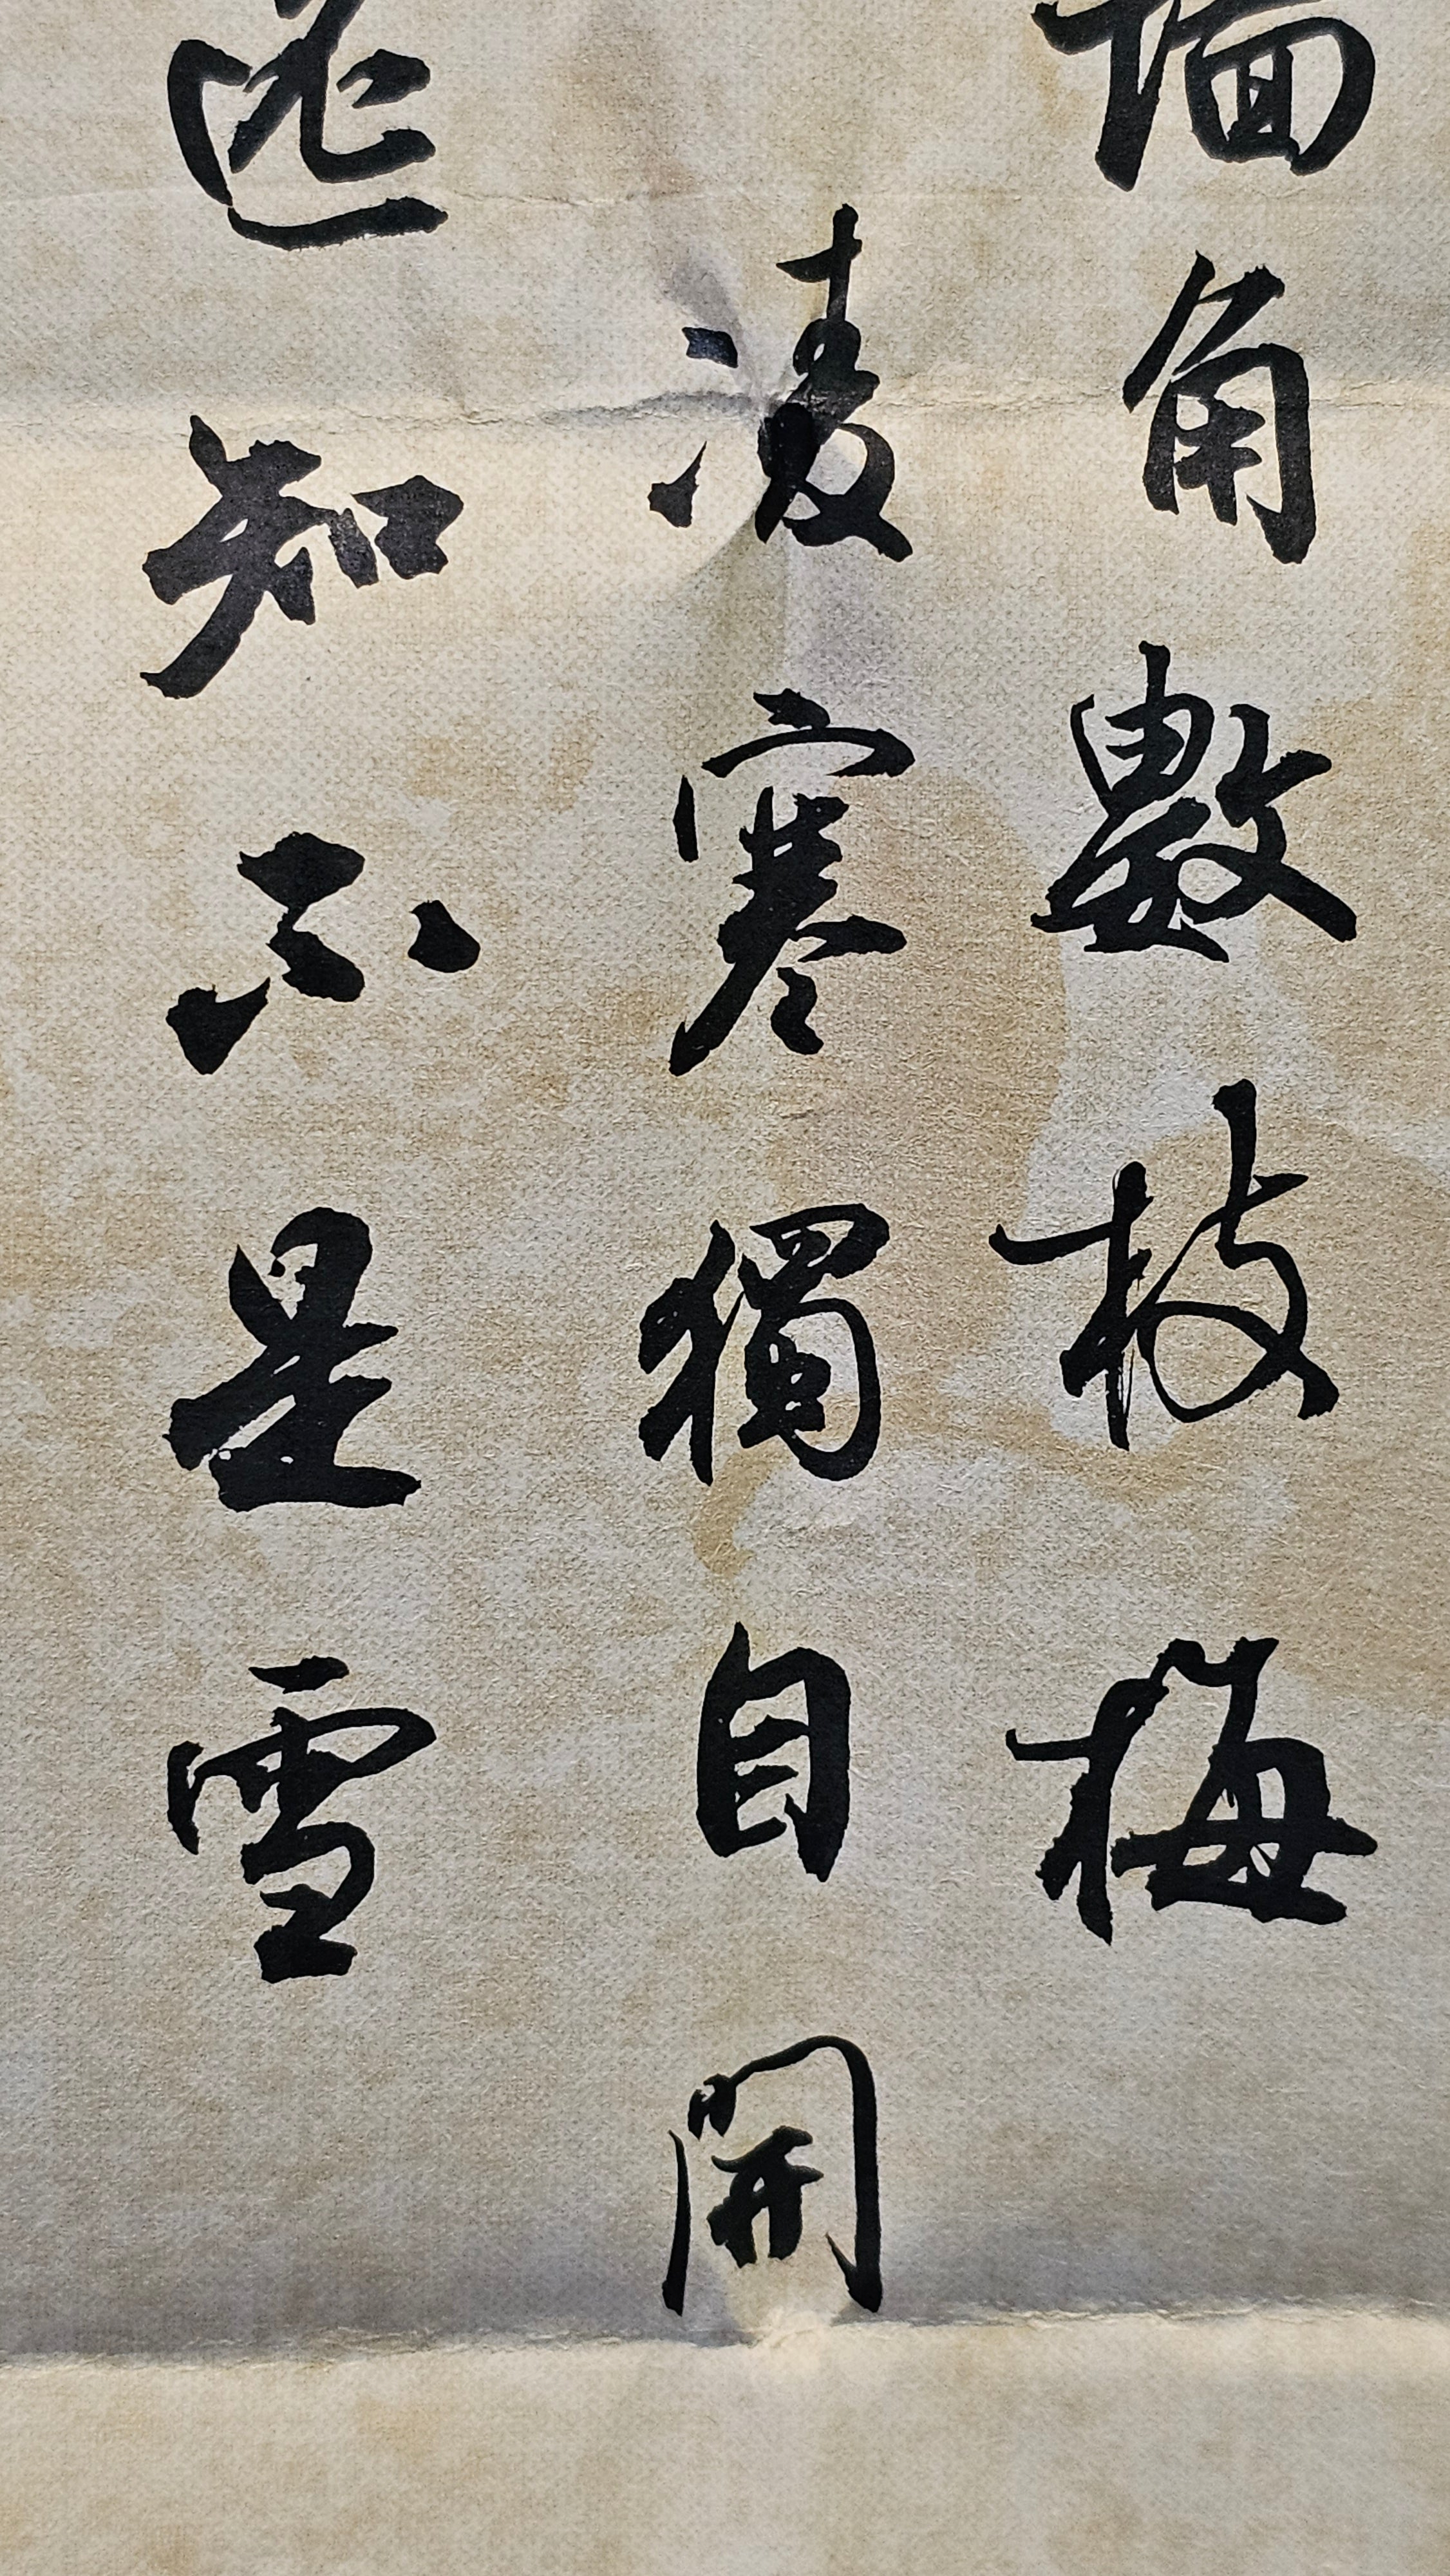 墙角數枝梅
凌寒獨自開
遥知不是雪